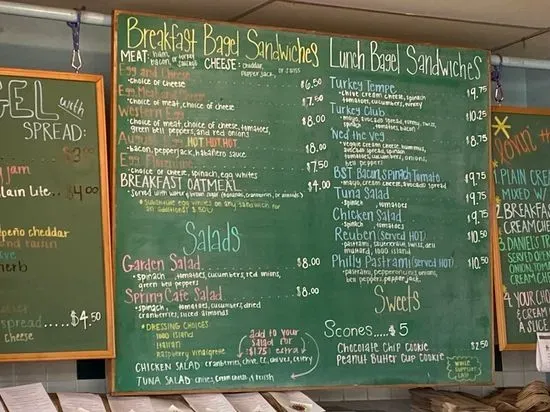 GEL with
SPREAD:
$3.00
jam
lain Lite... $4.00
peño cheddar
and raisin
ve
herb
spread.....$4.50
cheese
Breakfast Bagel Sandwiches
MEAT: ham, turkey, bacon, or sausage CHEESE: cheddar, pepper jack, or swiss
Egg and Cheese $6.50
•choice of cheese
Egg Meat and Cheese $7.50
•choice of meat, choice of cheese
Western Egg $8.00
•choice of meat, choice of cheese, tomatoes, green bell peppers, and red onions
HOT HOT HOT $8.00
•bacon, pepper jack, habañero sauce
Egg $7.50
•choice of cheese, spinach, egg whites
BREAKFAST OATMEAL $4.00
•Served with brown sugar (bananas, cranberries, or almonds)
*substitute egg whites on any sandwich for an additional $.50
Salads
Garden Salad $8.00
•spinach, tomatoes, cucumbers, red onions, green bell peppers
Spring Cafe Salad $8.00
•spinach, tomatoes, cucumbers, dried cranberries, sliced almonds
•DRESSING CHOICES
•1000 island
•Italian
•Raspberry vinaigrette
add to your salad for $1.75 extra
CHICKEN SALAD cranberries, chive cc, chives, celery
TUNA SALAD chive, cream cheese, & relish
Lunch Bagel Sandwiches
•cheddar, pepper jack, swiss
Turkey Tempe $9.75
•chive cream cheese, spinach tomatoes, cucumbers,
Turkey Club $10.25
•mayo, avocado spread, swiss, spinach, tomatoes, bacon
Ned the Veg $8.75
•veggie cream cheese, hummus, avocado spread, spinach tomatoes, cucumbers, onions, bell peppers
BST Bacon, Spinach, Tomato $9.75
•mayo, cream cheese, avocado spread
Tuna Salad $9.75
•spinach, tomatoes
Chicken Salad $9.75
•spinach, tomatoes
Reuben (Served HOT) $10.50
•pastrami, sauerkraut, swiss, deli mustard, 1000 island
Philly Pastrami (Served HOT) $10.50
•pastrami, pepperoncinis, onions, bell peppers, pepper jack
Sweets
Scones.....$5
Chocolate Chip Cookie $2.50
Peanut Butter Cup Cookie
WHILE SUPPLIES LAST
1 PLAIN CREAM
MIXED W/
2 BREAKFA
CREAMCHEE
3 DANIELS T
SERVED OPEN
ONION, TOM
CREAM CHEE
4 YOUR CHO
& CREAM
MADE IN
A SCO